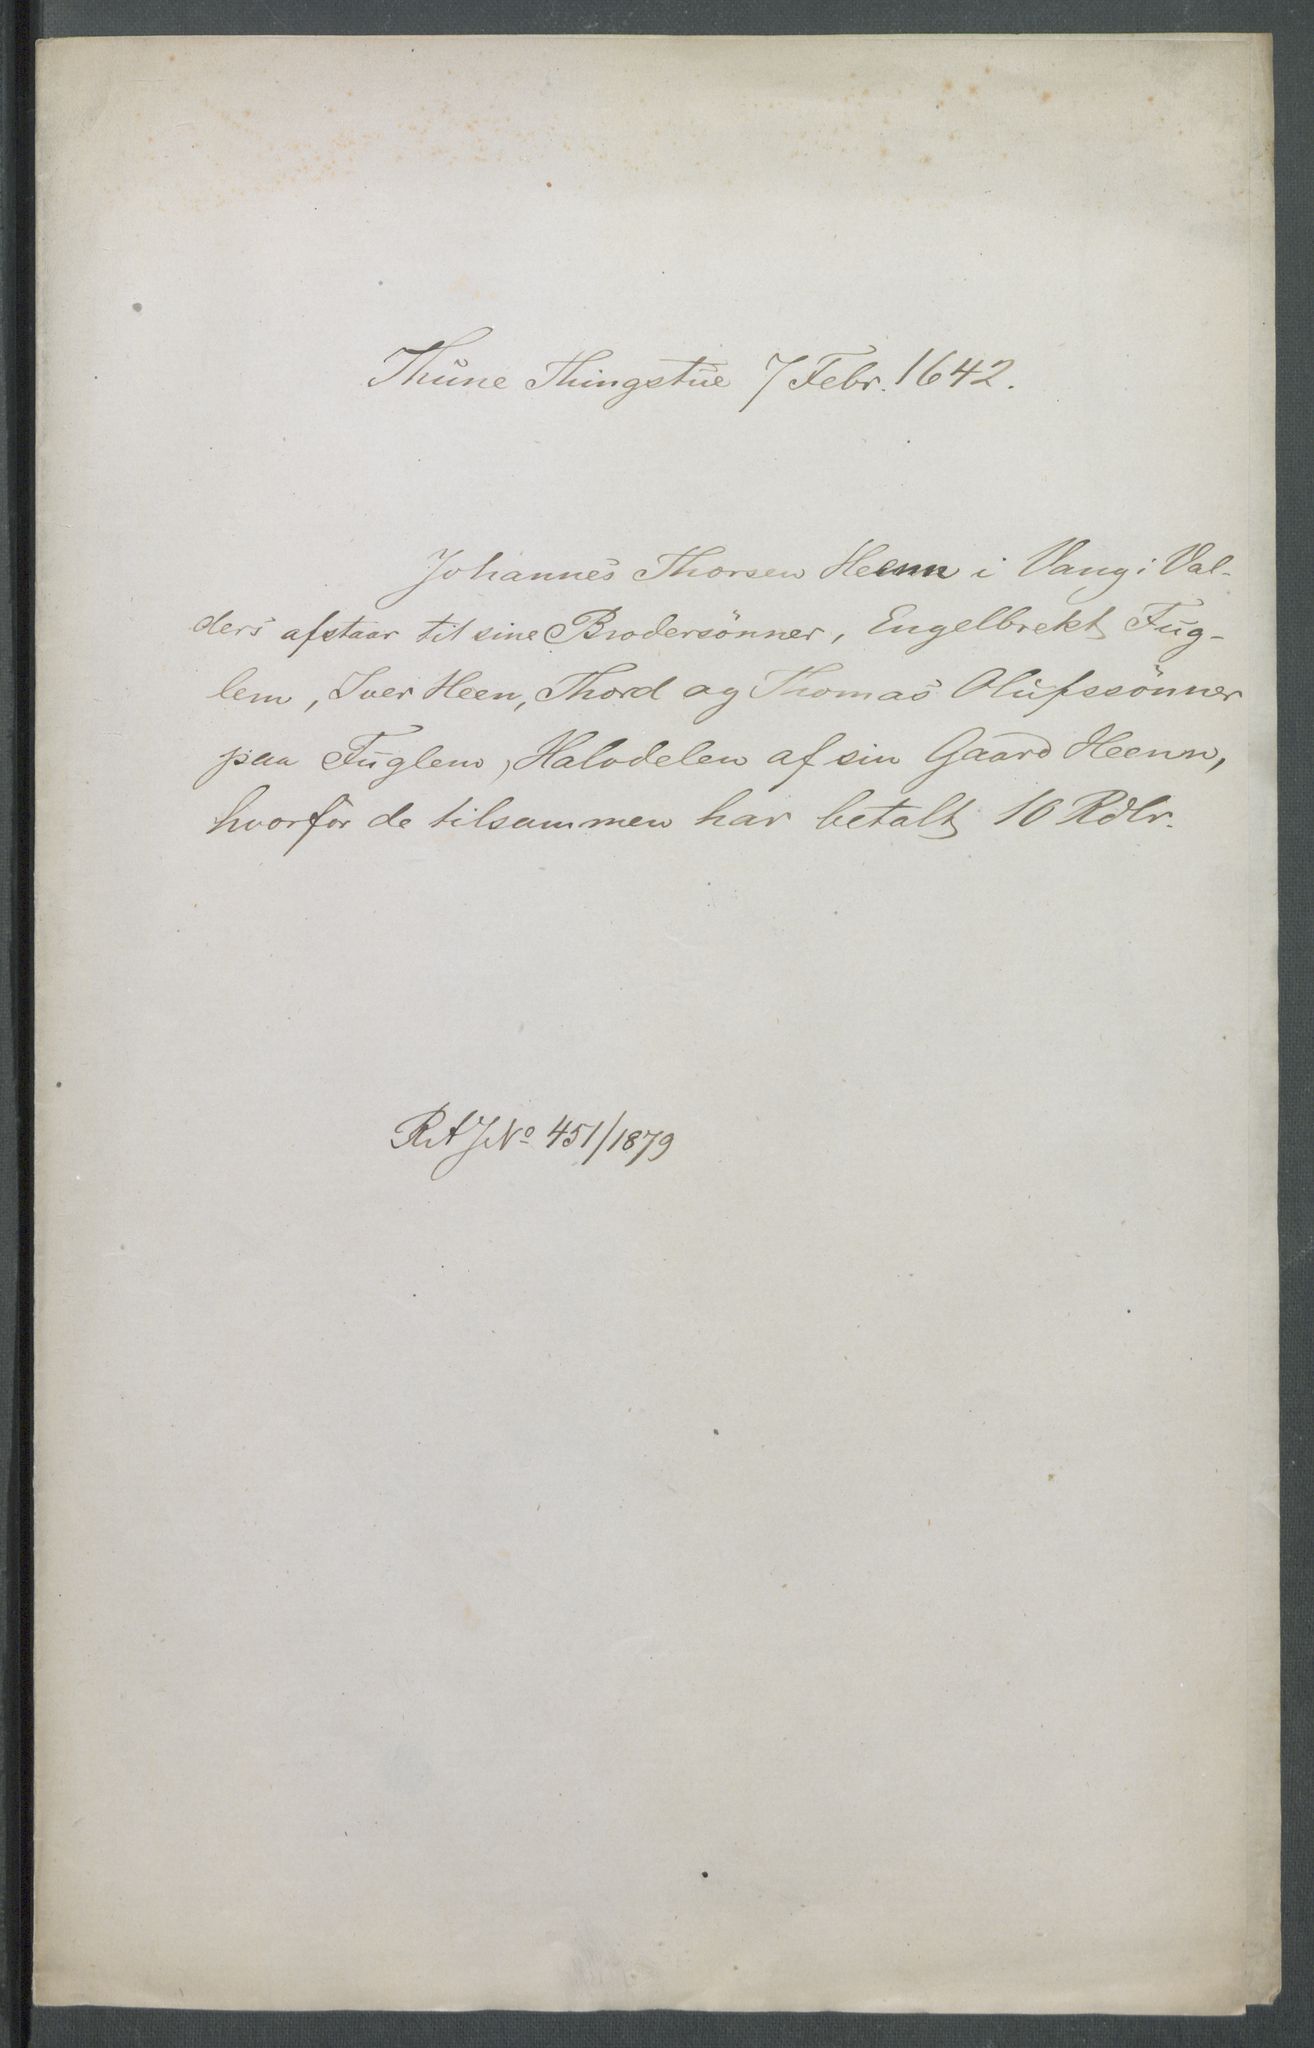 Thune Thingstue 7 Febr. 1642.
Johannes Thorsen Heenn i Vang i Val-
ders afstaar til sine Brodersönner, Engelbrekt Fug-
lem, Iver Heen, Thord og Thomas Olufssönner
paa Fuglem, Halvdelen af sin Gaard Heenn,
hvorfor de tilsammen har betalt 10 Rdlr.
RA JNo 451/1879